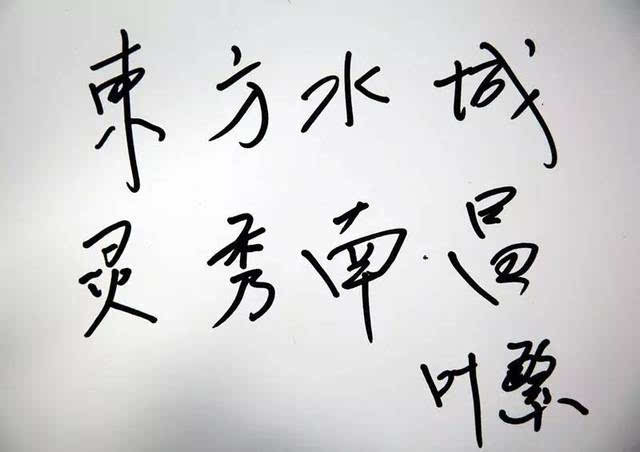 東方水城
灵秀南昌
叶